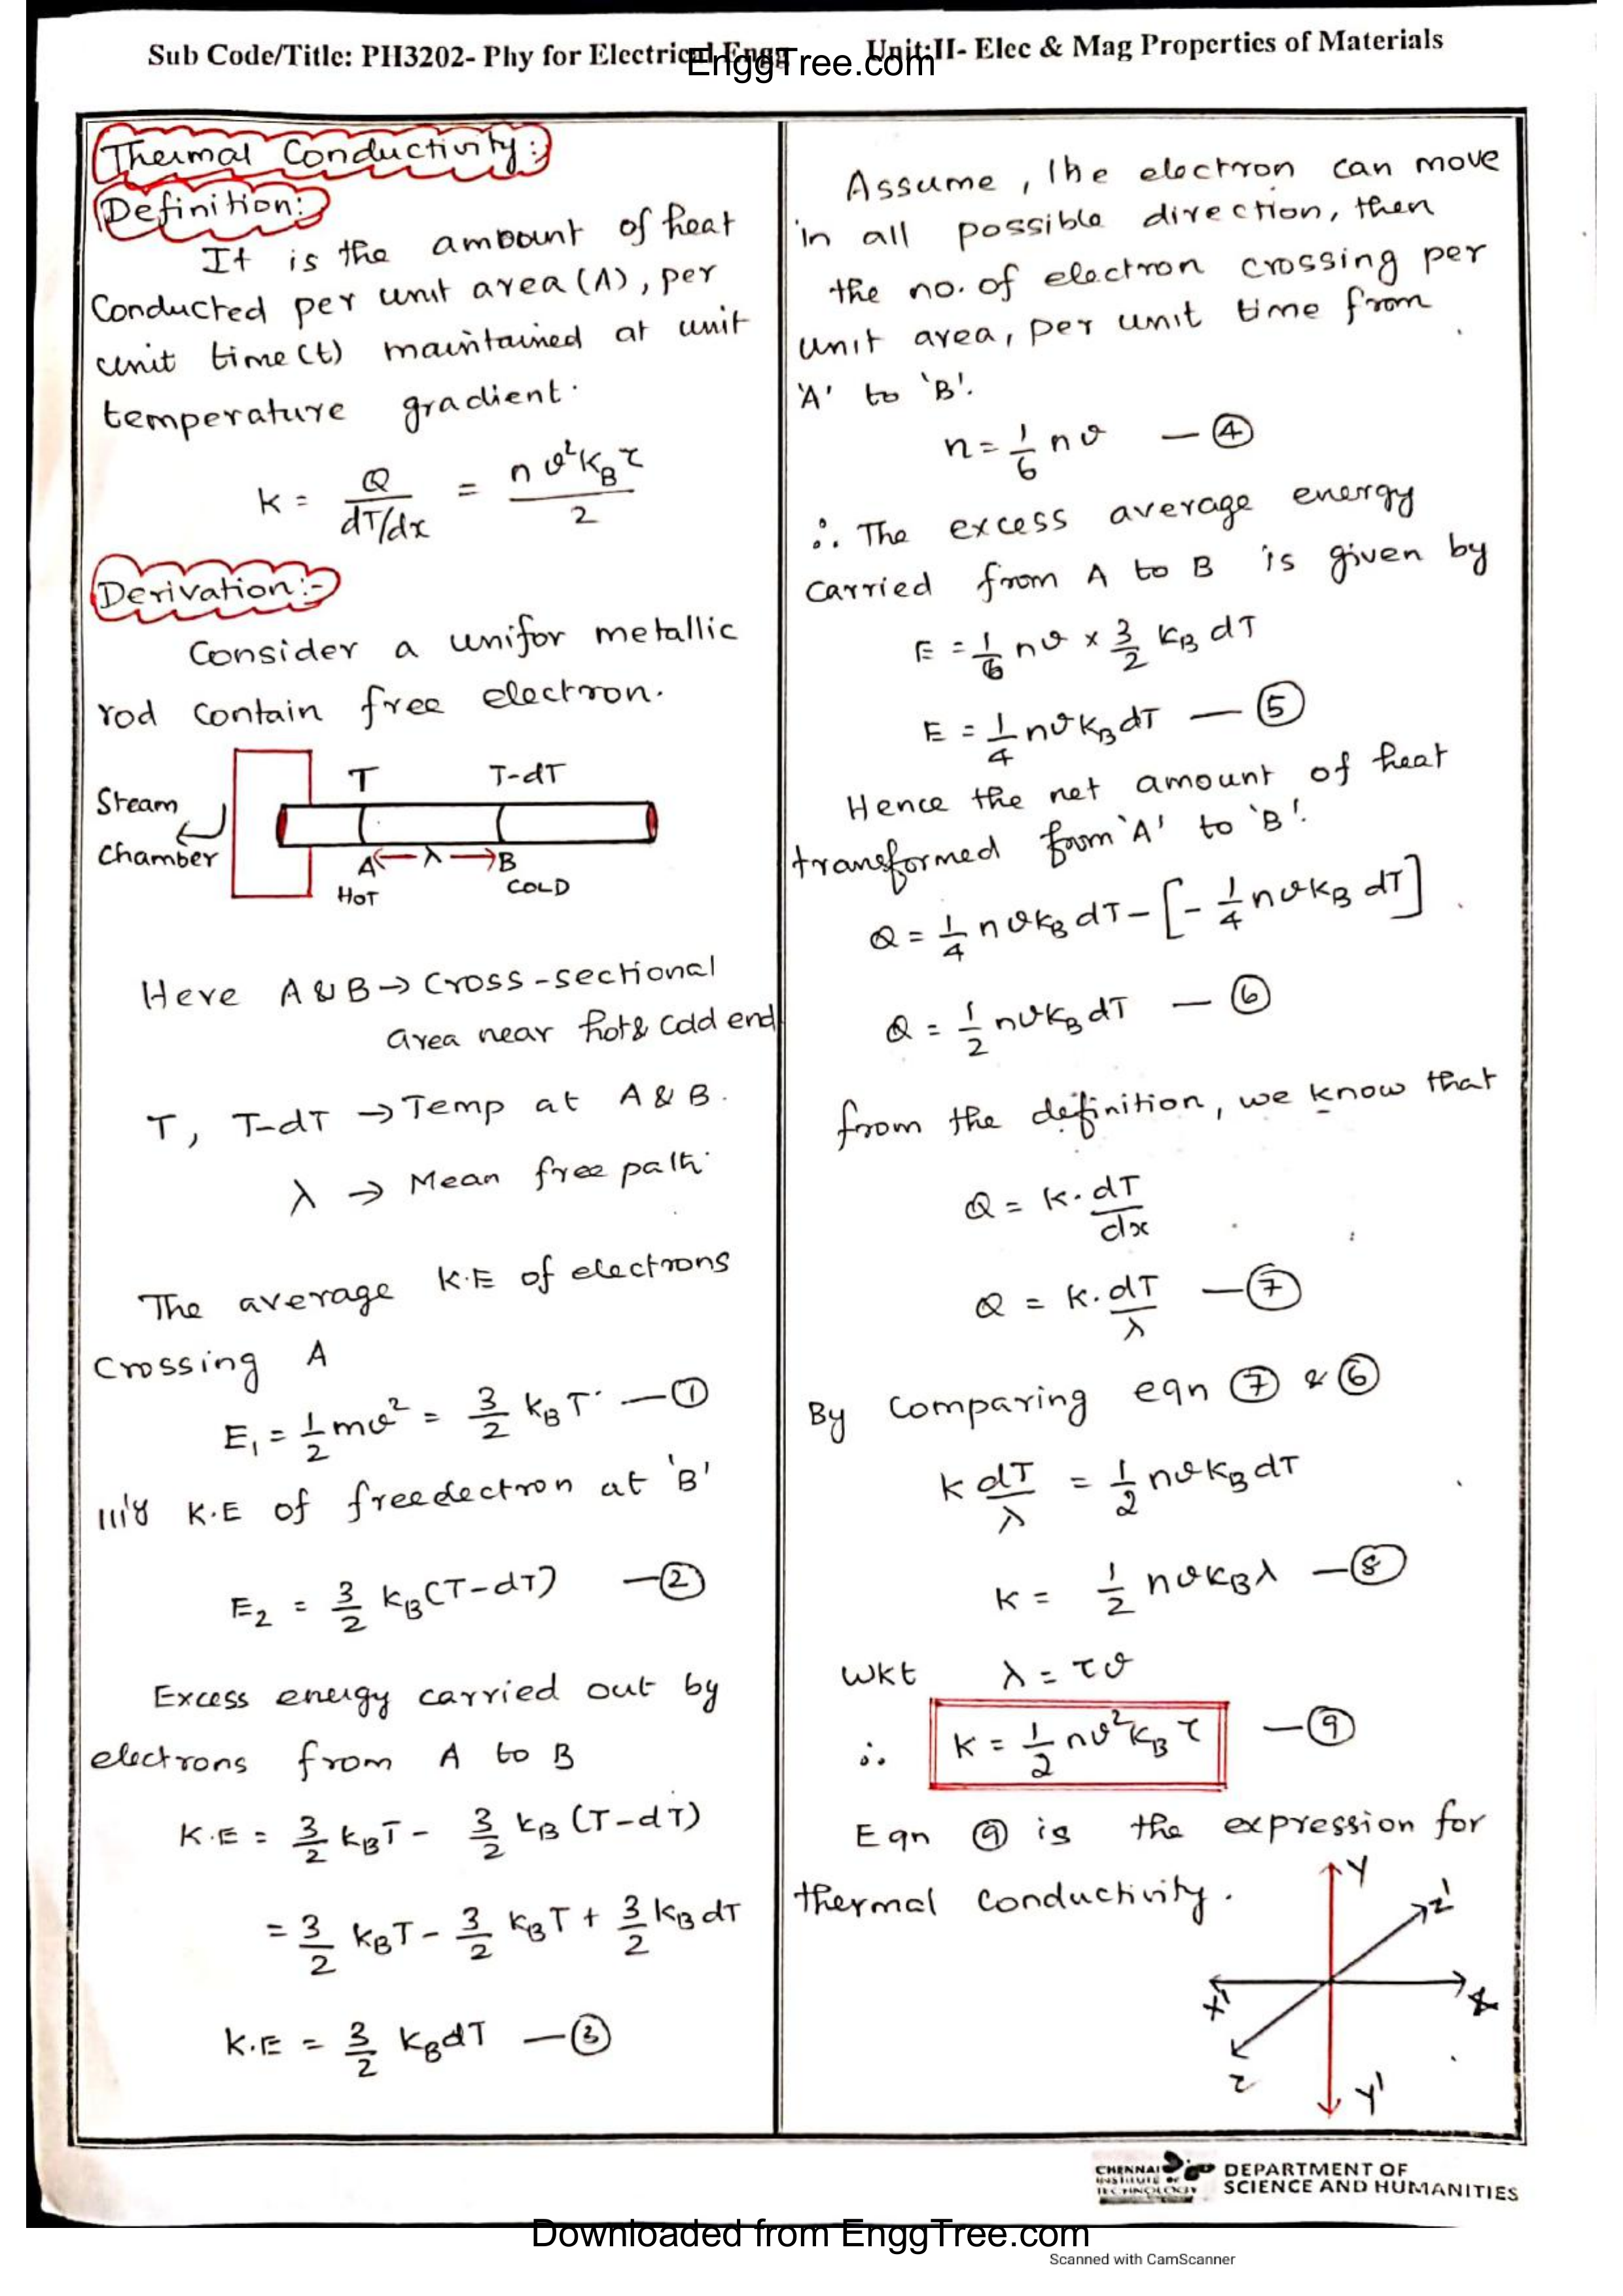 Sub Code/Title: PH3202- Phy for Electrical Engg Unit:II- Elec & Mag Properties of Materials
EnggTree.com
Thermal Conductivity:
Definition:
It is the amount of heat
Conducted per unit area (A), per
unit time (t) maintained at unit
temperature gradient.
K = Q / dT/dx = n v² K_B τ / 2
Derivation:-
Consider a unifor metallic
rod contain free electron.
T T-dT
Steam
chamber
A ← λ → B
HOT COLD
Here A & B → Cross-sectional
area near hot & cold end
T, T-dT → Temp at A & B.
λ → Mean free path.
The average K.E of electrons
Crossing A
E₁ = 1/2 mv² = 3/2 k_B T — ①
III'y K.E of free electron at 'B'
E₂ = 3/2 k_B (T-dT) — ②
Excess energy carried out by
electrons from A to B
K.E = 3/2 k_B T - 3/2 k_B (T-dT)
= 3/2 k_B T - 3/2 k_B T + 3/2 k_B dT
K.E = 3/2 k_B dT — ③
Assume, the electron can move
in all possible direction, then
the no. of electron crossing per
unit area, per unit time from
'A' to 'B'.
n = 1/6 nv — ④
∴ The excess average energy
carried from A to B is given by
E = 1/6 nv x 3/2 K_B dT
E = 1/4 nv K_B dT — ⑤
Hence the net amount of heat
transformed from 'A' to 'B'.
Q = 1/4 nv k_B dT - [- 1/4 nv k_B dT]
Q = 1/2 nv k_B dT — ⑥
from the definition, we know that
Q = K. dT/dx
Q = K. dT/λ — ⑦
By Comparing eqn ⑦ & ⑥
K dT/λ = 1/2 nv k_B dT
K = 1/2 nv k_B λ — ⑧
wkt λ = τv
∴ K = 1/2 nv² k_B τ — ⑨
Eqn ⑨ is the expression for
thermal conductivity.
Y
Z'
X' X
Z
Y'
CHENNAI
INSTITUTE OF
TECHNOLOGY
DEPARTMENT OF
SCIENCE AND HUMANITIES
Downloaded from EnggTree.com
Scanned with CamScanner